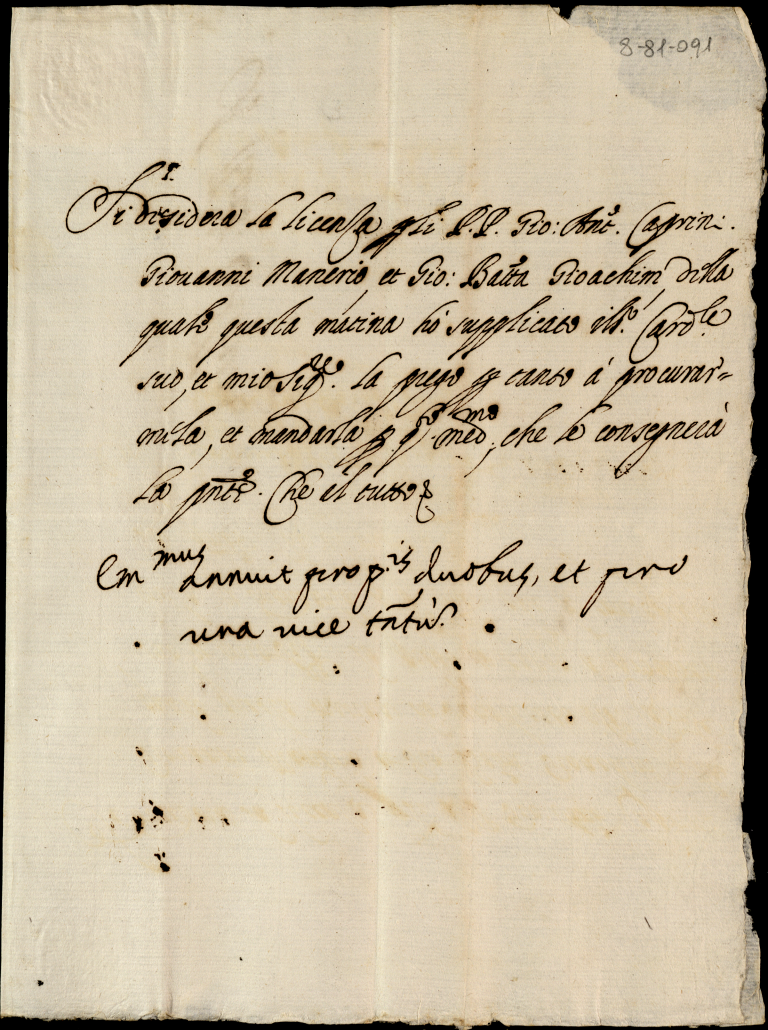 8-81-091
Si desidera la licenza p li P.P. Gio: Ant.º Caprini.
Giovanni Manerio, et Gio: Batta Gioachim', della
quale questa matina hò supplicato ill.º Card.le
suo, et mio Sig.re. La prego p tanto á procurar=
mila, et mandarla p q.sto med.mo, che le consegnerà
la pnte. Che è il tutto
Em.mus annuit pro p.is duobus, et pro
una vice tãtũ.